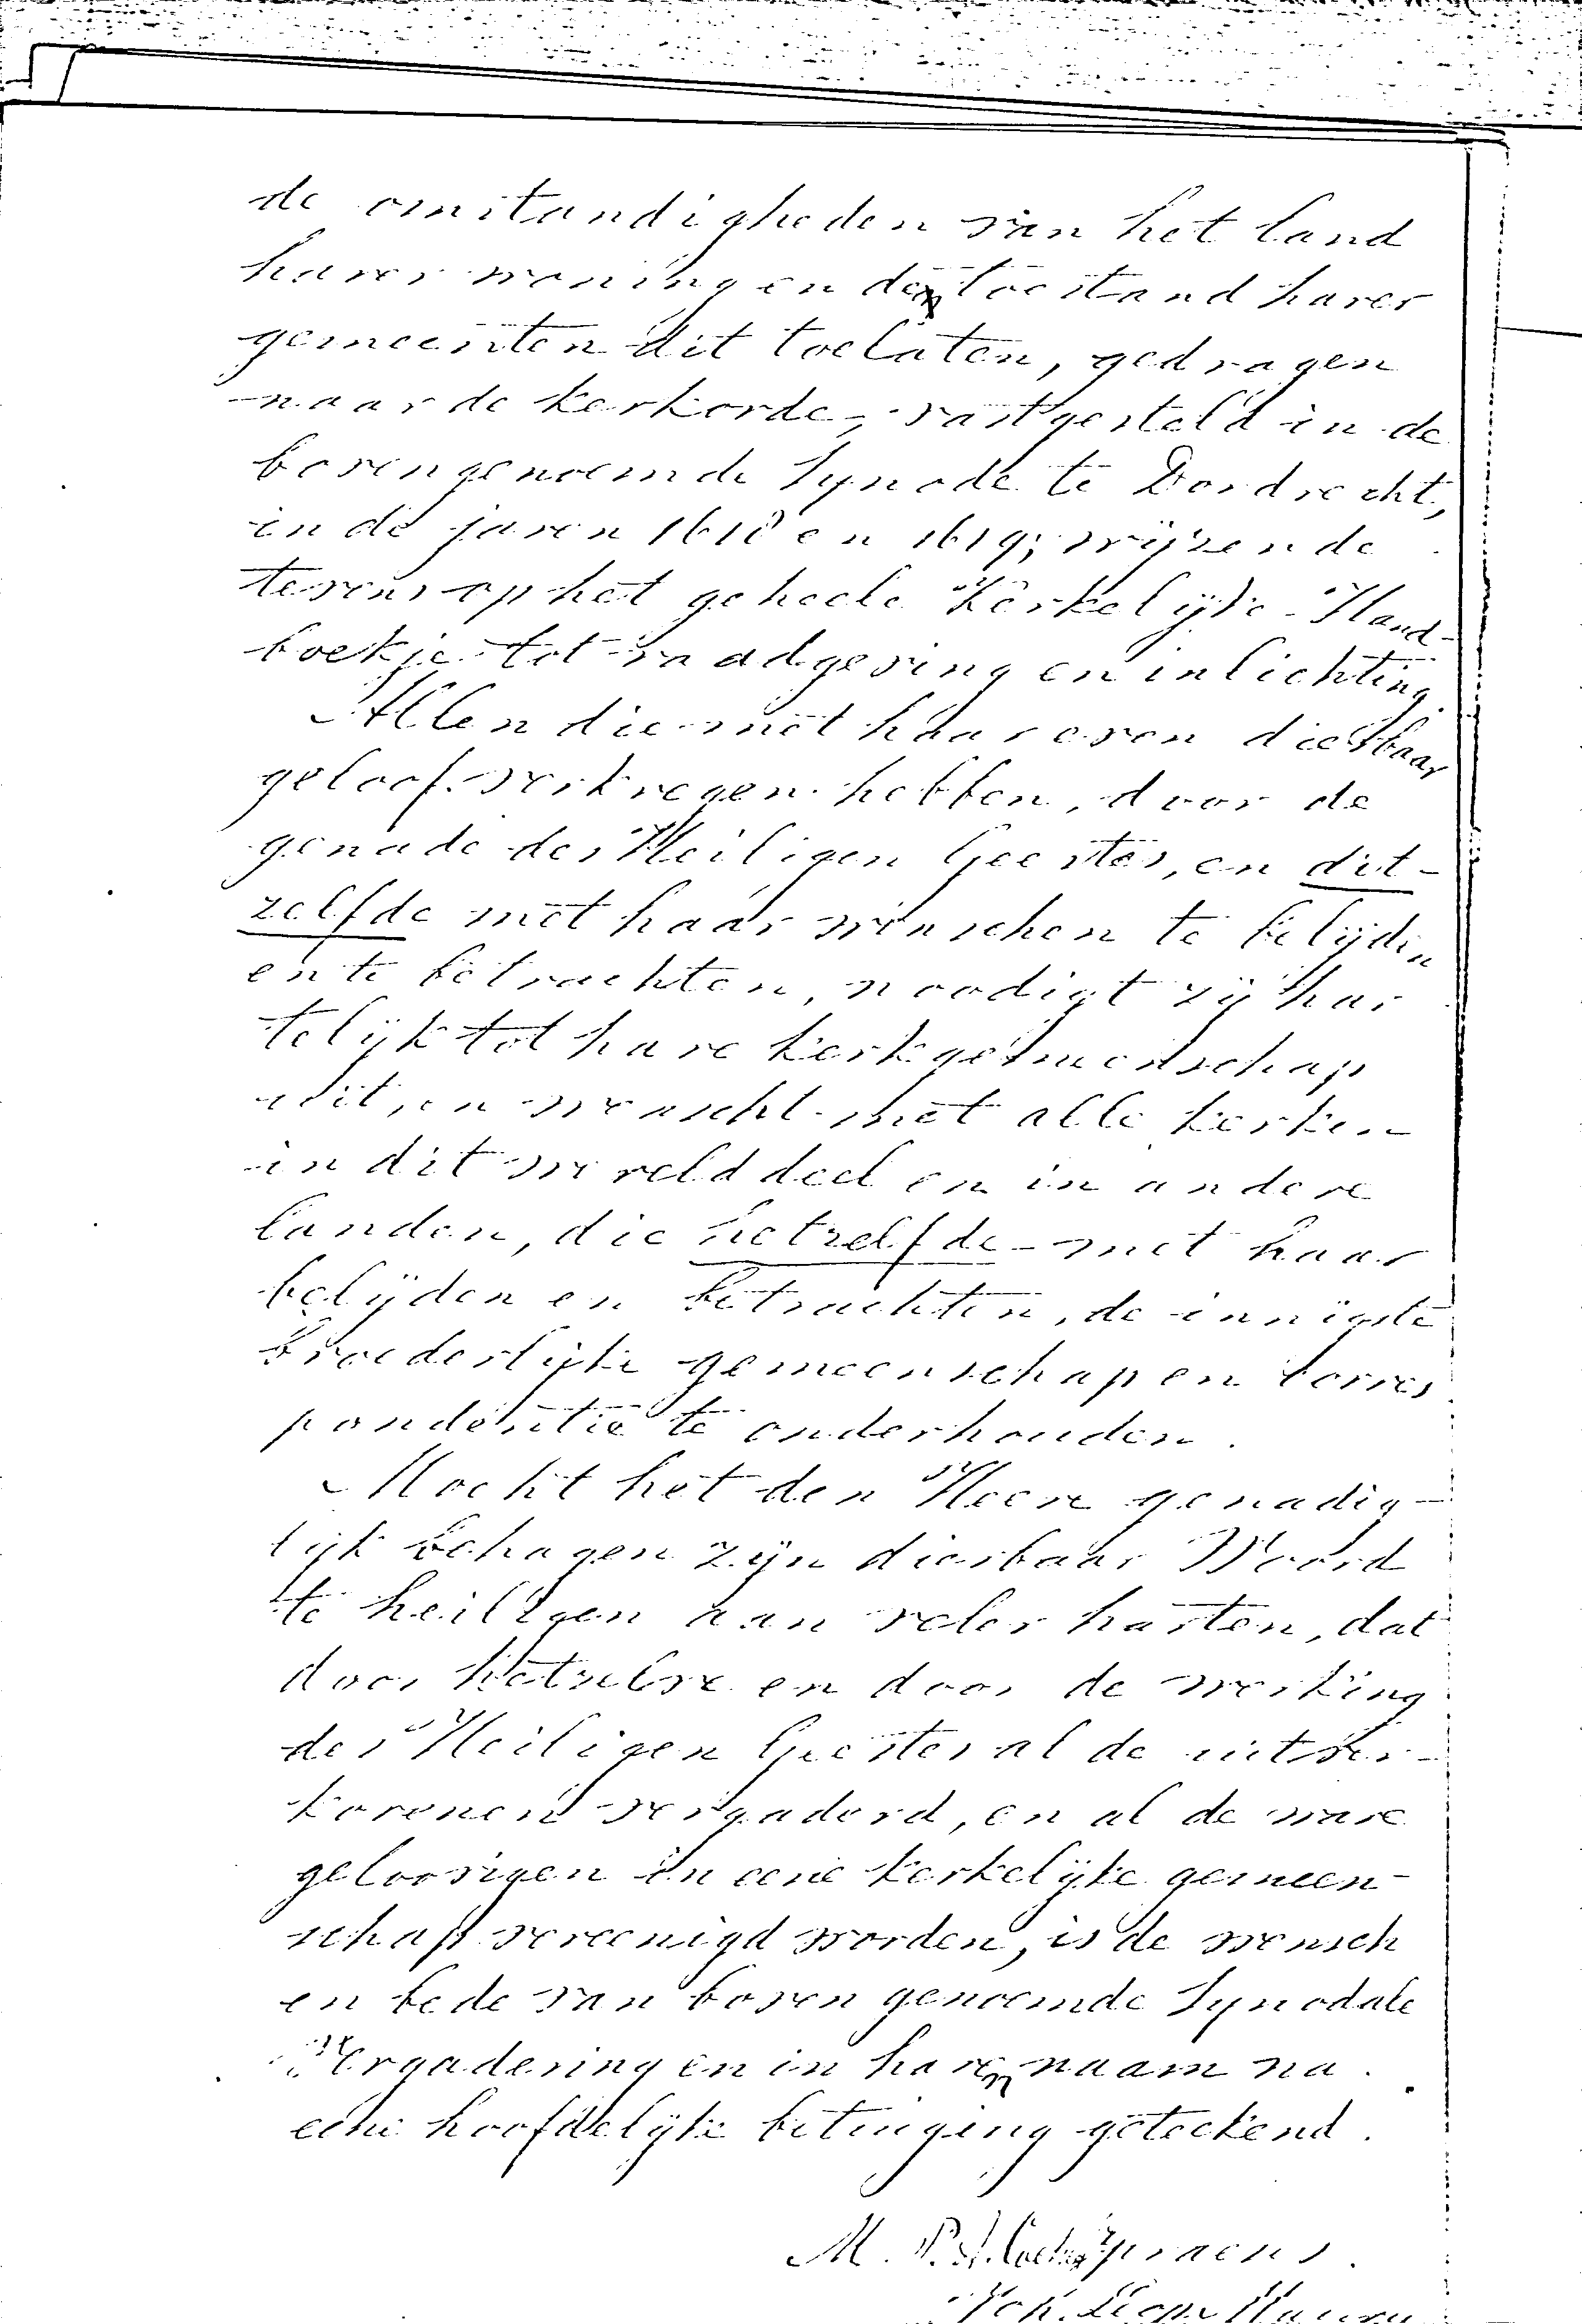 de omstandigheden van het land
harer woning en de toestand harer
gemeenten dit toelaten, gedragen
naar de kerkorde, vastgesteld in de
bovengenoemde Synode te Dordrecht,
in de jaren 1618 en 1619; wijzende
tevens op het geheele Kerkelijke Hand-
boekje tot raadgeving en inlichting.
Allen die met haar even dierbaar
geloof verkregen hebben, door de
genade des Heiligen Geestes, en dit-
zelfde met haar wenschen te belijden
en te betrachten, noodigt zij har
telijk tot hare kerkgemeenschap
uit, en wenscht met alle kerken
in dit werelddeel en in andere
landen, die hetzelfde met haar
belijden en betrachten, de innigste
broederlijke gemeenschap en corres
pondentie te onderhouden.
Mocht het den Heere genadig-
lijk behagen zijn dierbaar Woord
te heiligen aan veler harten, dat
door hetzelve en door de werking
des Heiligen Geestes al de uitver-
korenen vergaderd, en al de ware
geloovigen in eene kerkelijke gemeen-
schap vereenigd worden, is de wensch
en bede van boven genoemde Synodale
Vergadering en in haren naam na
eene hoofdelijke betuiging geteekend.
M. P. A. Coetsee praens.
Joh.